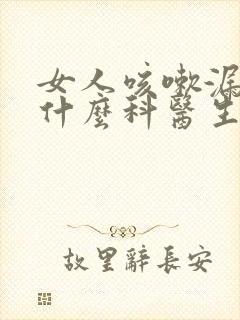 女人咳嗽漏
什麼科醫生
故里辭長安